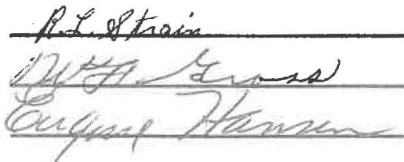 R.L. Strain
Gross
Eugene Hansen